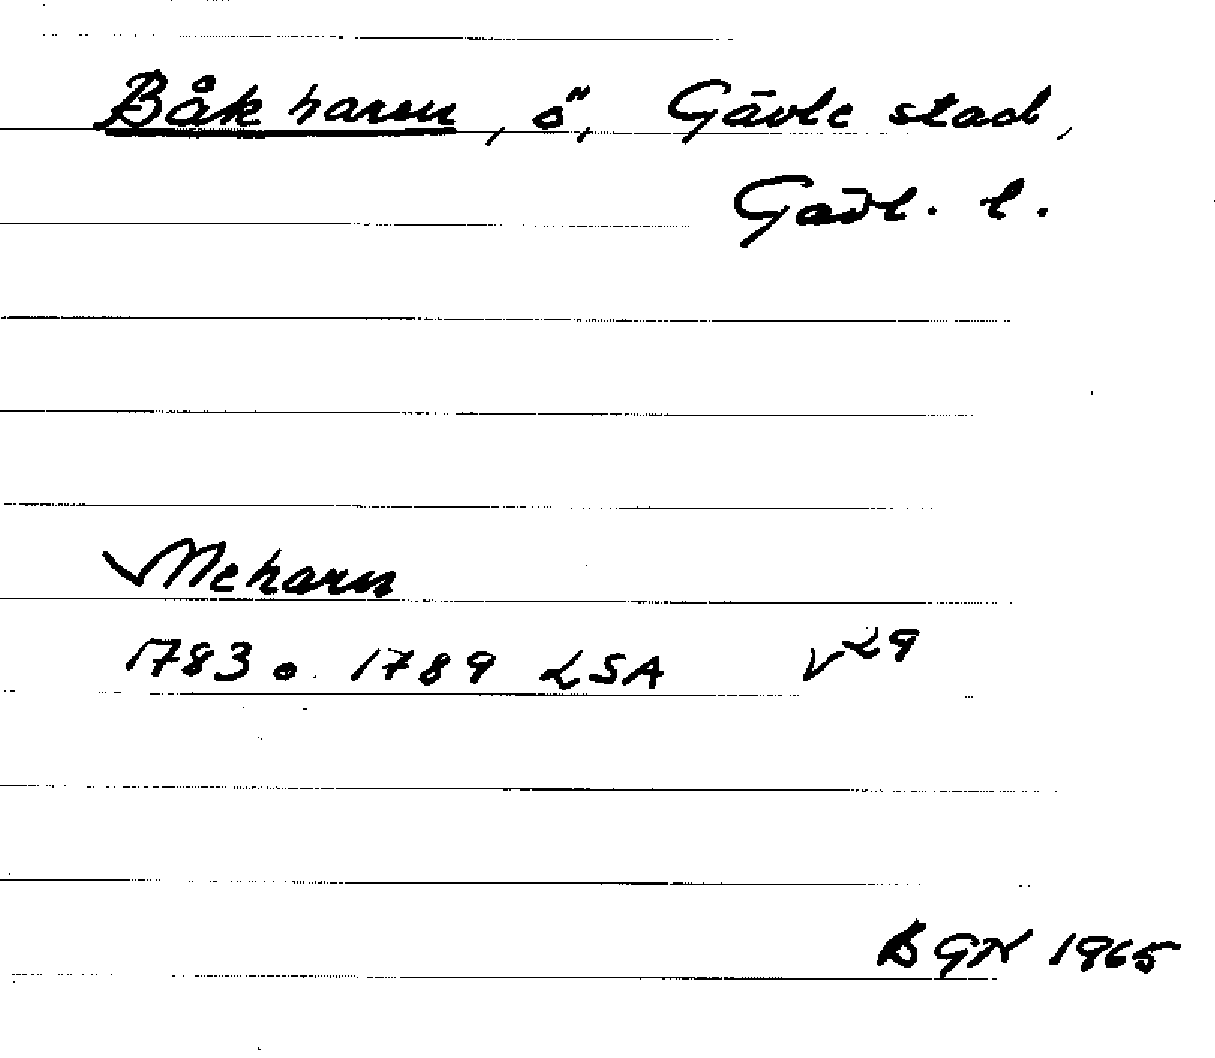 Båkharen, ö, Gävle stad,
Gävl. l.
Meharn
1783 o. 1789 LSA L9
BGN 1965